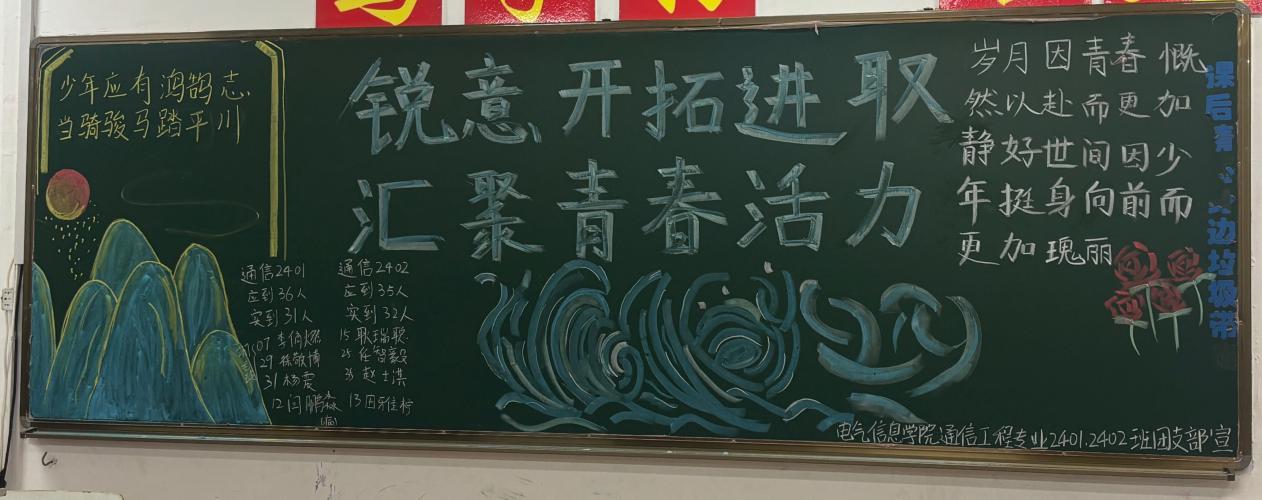 少年应有鸿鹄志
当骑骏马踏平川
锐意开拓进取
汇聚青春活力
岁月因青春慨
然以赴而更加
静好世间因少
年挺身向前而
更加瑰丽
课后清
边垃圾带
通信2401
应到36人
实到31人
07 李
29 孙敬博
31 杨震
12 闫鹏
(病)
通信2402
应到35人
实到32人
15 耿瑞聪
25 任智毅
35 赵士淇
13 田雅柠
电气信息学院通信工程专业2401.2402班团支部宣